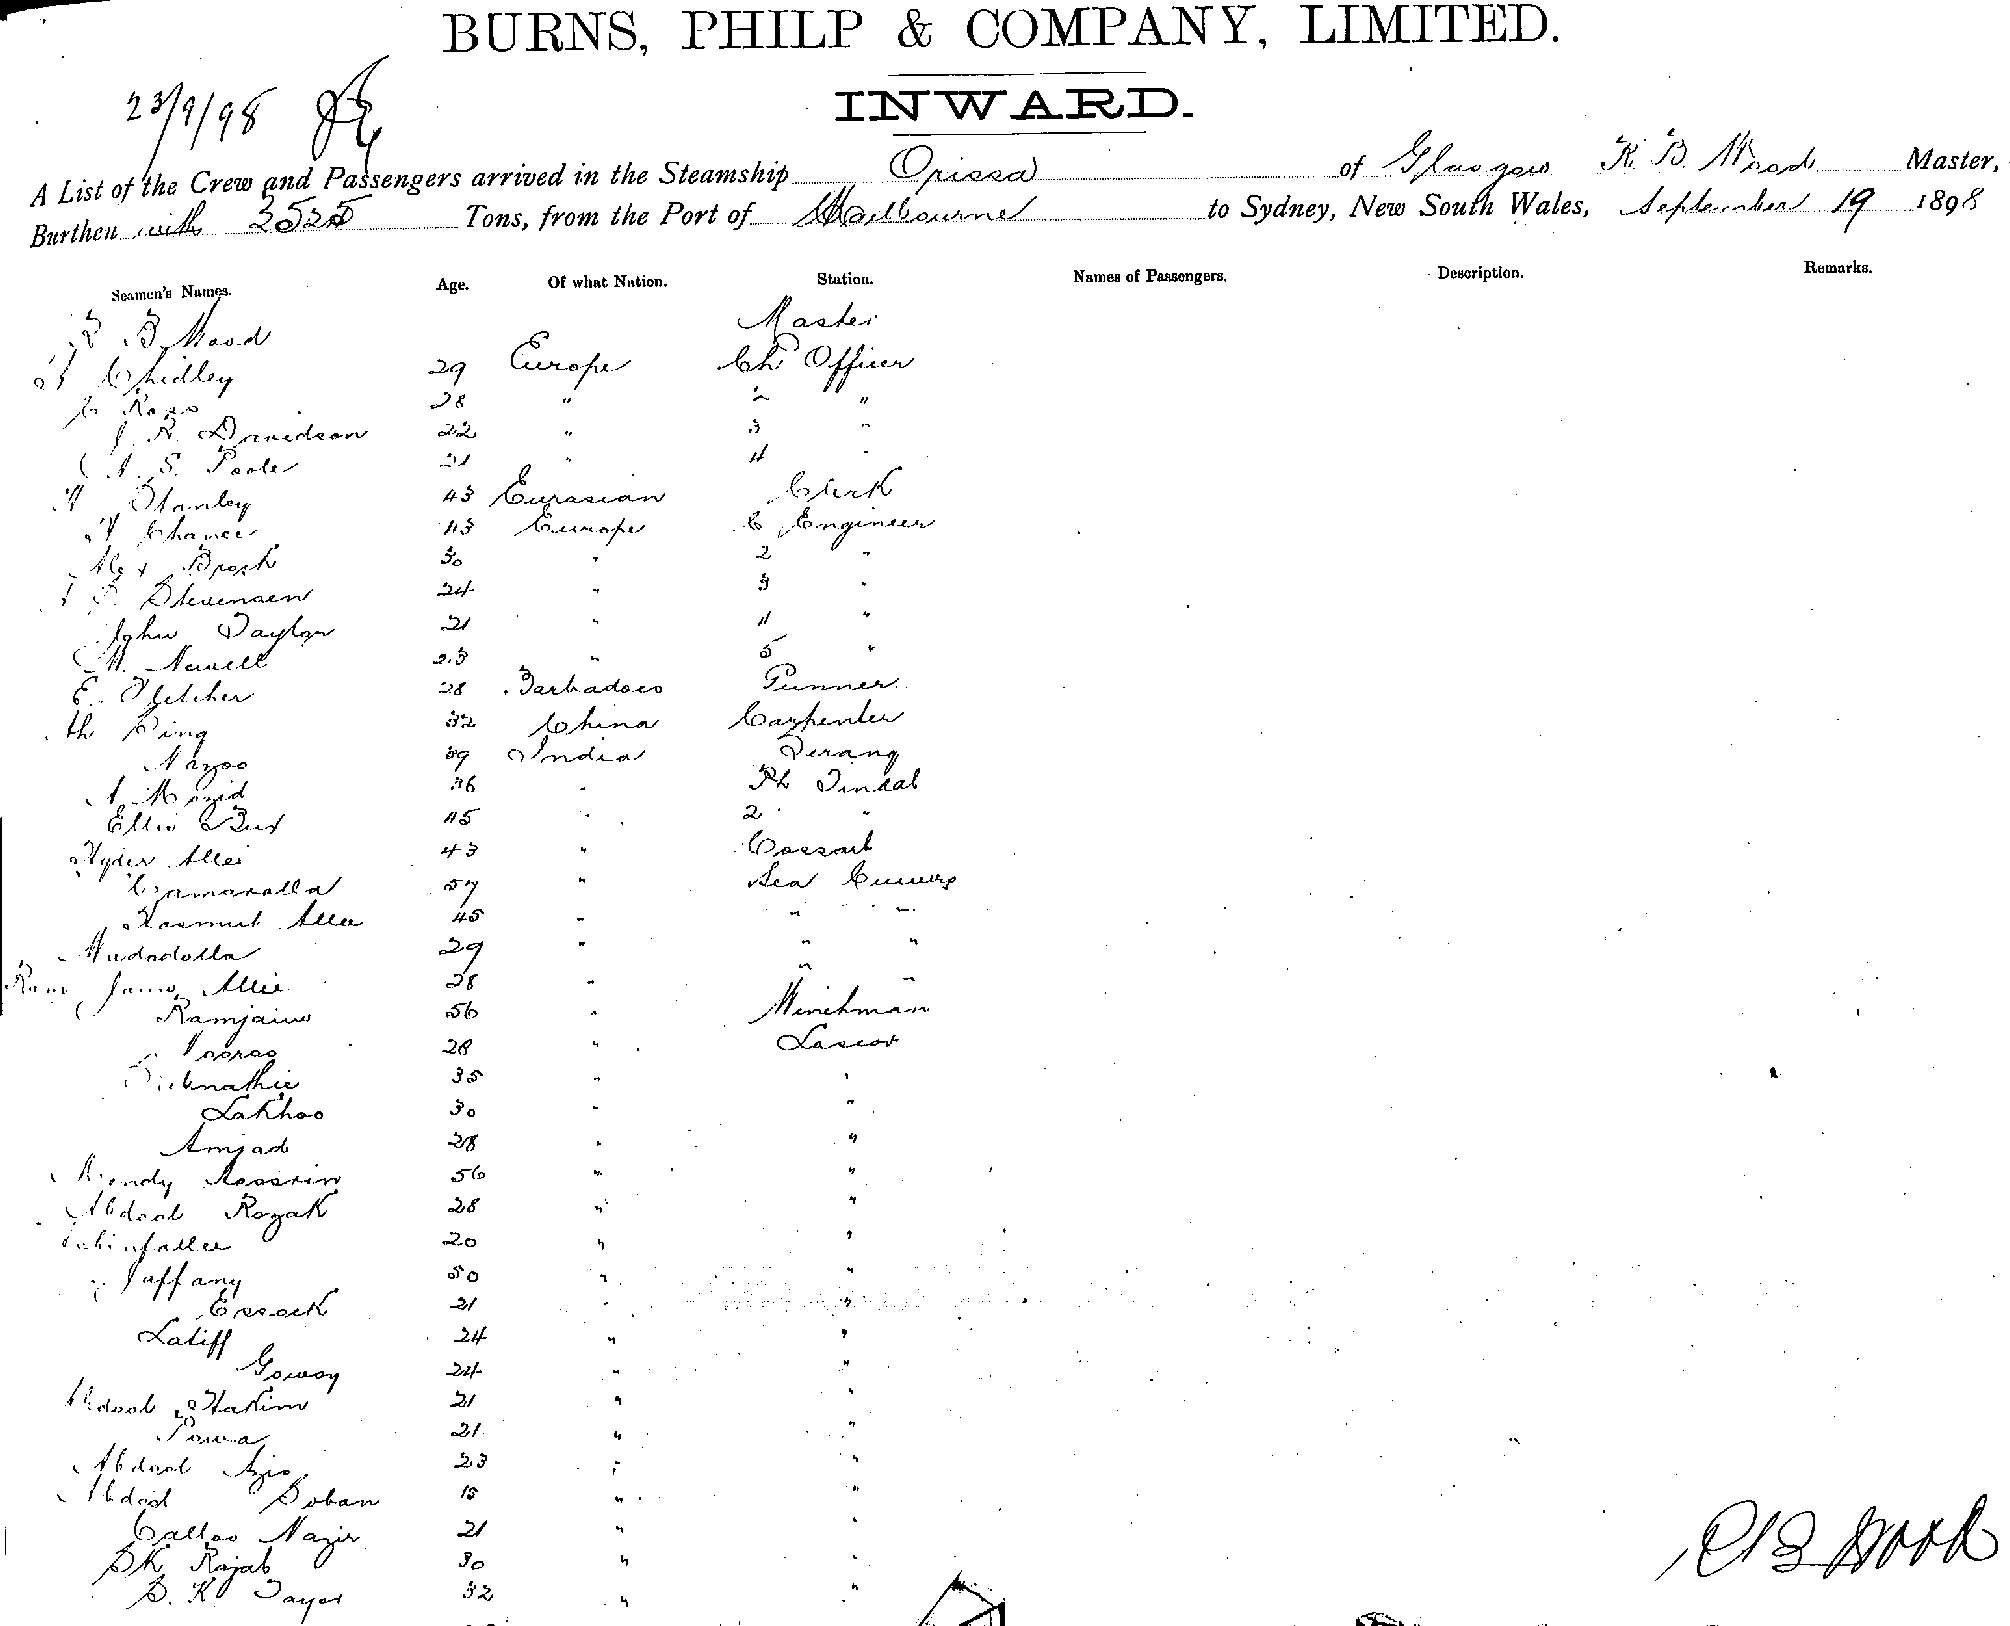 BURNS, PHILP & COMPANY, LIMITED.
INWARD.
23/9/98
A List of the Crew and Passengers arrived in the Steamship Orissa of Glasgow K. B. Wood Master,
Burthen with 3525 Tons, from the Port of Melbourne to Sydney, New South Wales, September 19 1898
Seamen's Names. Age. Of what Nation. Station. Names of Passengers. Description. Remarks.
B Wood Master
Chidley 29 Europe Ch Officer
Ross 28 " 2 "
J. R. Davidson 22 " 3 "
A. S. Poole 21 " 4 "
Stanley 43 Eurasian Clerk
Chance 43 Europe C Engineer
Alex Brock 30 " 2 "
Stevensen 24 " 3 "
John Taylor 21 " 4 "
M. Newell 23 " 5 "
E. Fletcher 28 Barbadoes Gunner
Ah Ping 32 China Carpenter
Nazoo 39 India Serang
A. Mozid 36 " Tindal
Ellis Bux 45 " 2 "
Hyder Allei 43 " Cossaub
57 " Sea Cunnys
Allee 45 " " "
Mudadolla 29 " " "
Ram Allie 28 " " "
Ramjaun 56 " Winchman
28 " Lascar
35 " "
Lakhoo 30 " "
Amjad 28 " "
56 " "
Abdool Rozak 28 " "
20 " "
Jaffany 50 " "
Essack 21 " "
Latiff 24 " "
Gowoy 24 " "
Abdool Hakim 21 " "
Powa 21 " "
Abdool Azis 23 " "
Abdool Soban 18 " "
Calloo Nazir 21 " "
SK Rajab 30 " "
S. K. Tayer 32 " "
K B Wood